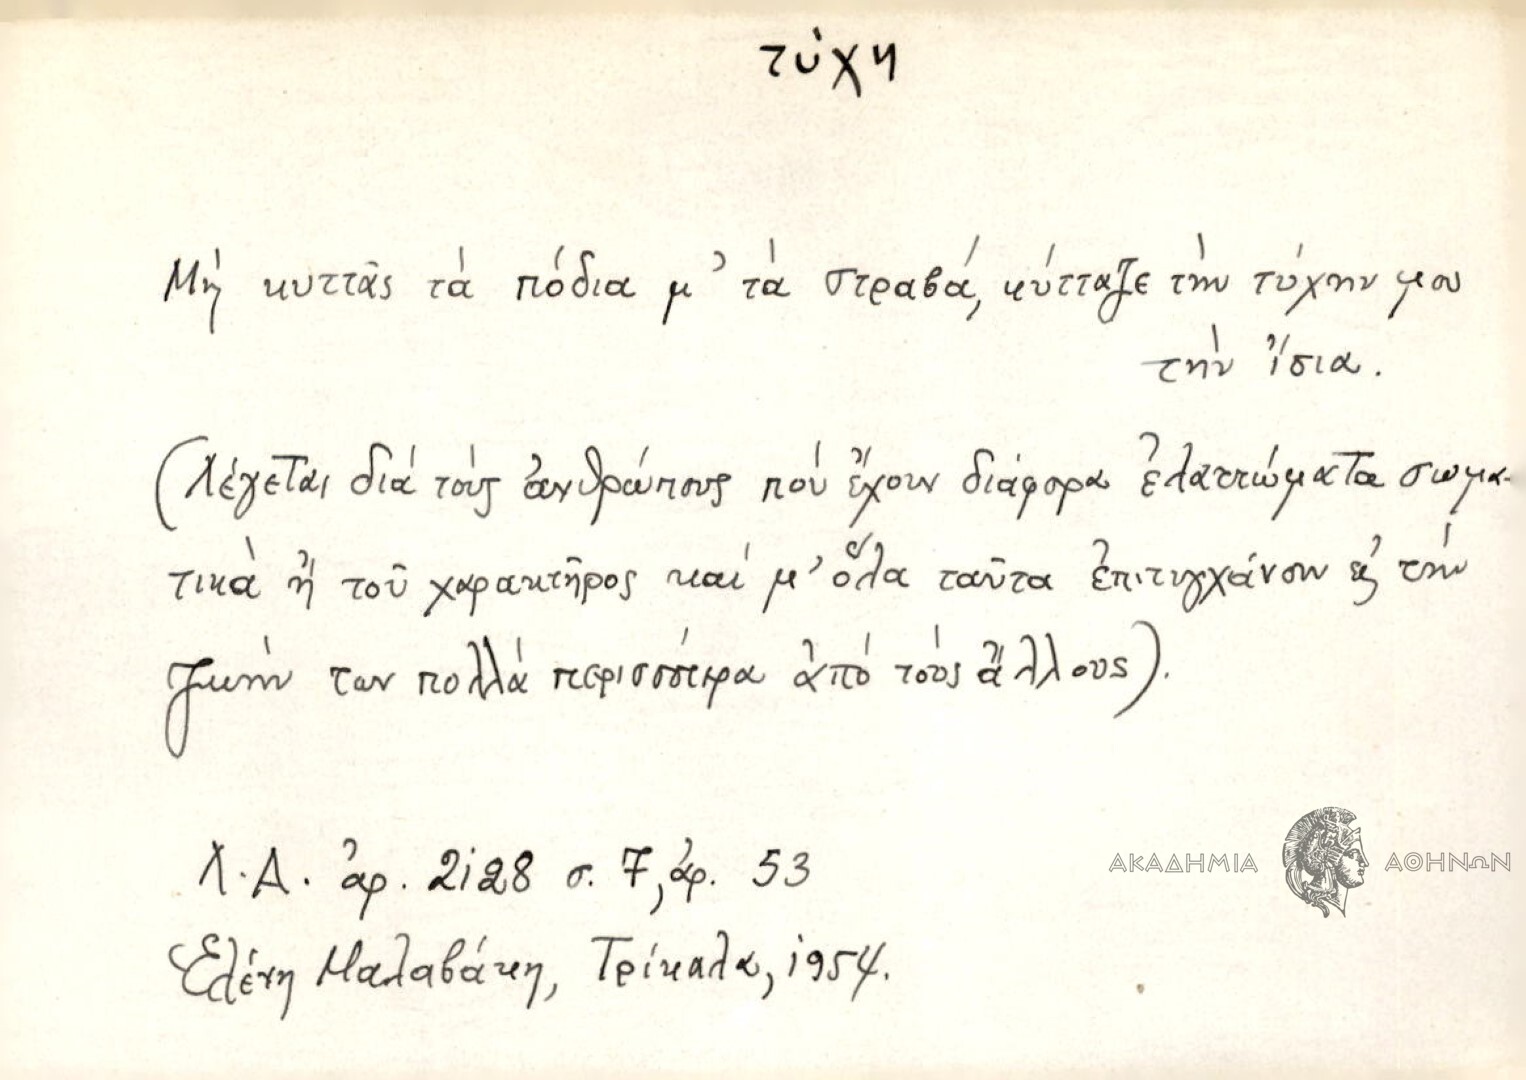 τύχη
Μὴ κυττᾶς τὰ πόδια μ' τὰ στραβά, κύτταξε τὴν τύχην μου
τὴν ἴσια.
(Λέγεται διά τούς ἀνθρώπους πού ἔχουν διάφορα ἐλαττώματα σωμα-
τικὰ ἤ τοῦ χαρακτῆρος καί μ' ὅλα ταῦτα ἐπιτυγχάνουν εἰς τὴν
ζωήν των πολλά περισσότερα ἀπό τούς ἄλλους).
Λ.Α. ἀρ. 2128 σ. 7, ἀρ. 53
Ἑλένη Μαλαβάκη, Τρίκαλα, 1954.
ΑΚΑΔΗΜΙΑ ΑΘΗΝΩΝ